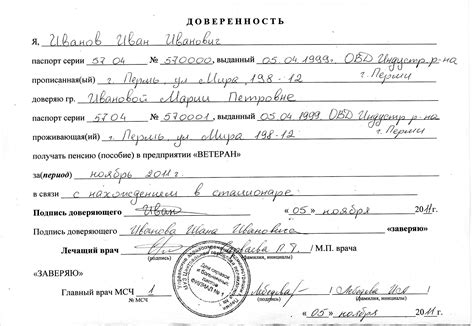 ДОВЕРЕННОСТЬ
Я, Иванов Иван Иванович
паспорт серии 57 04 № 570000, выданный 05.04.1999. ОВД Индустр. р-на
прописанный(ая) г. Пермь, ул Мира 198-12 г. Перми
доверяю гр. Ивановой Марии Петровне
паспорт серии 5704 № 570001, выданный 05.04.1999 ОВД Индустр р-на
проживающая(ий) г. Пермь, ул. Мира 198-12 г. Перми
получать пенсию (пособие) в предприятии «ВЕТЕРАН»
за(период) ноябрь 2011г.
в связи с нахождением в стационаре.
Подпись доверяющего Иван «05» ноября 2011г.
Подпись доверяющего Иванова Ивана Ивановича «заверяю»
Лечащий врач М.П. врача
(подпись) (фамилия, инициалы)
«ЗАВЕРЯЮ»
Главный врач МСЧ 1
№ МСЧ (подпись) (фамилия, инициалы)
Для справок и больничных листов
«05» ноября 2011г.